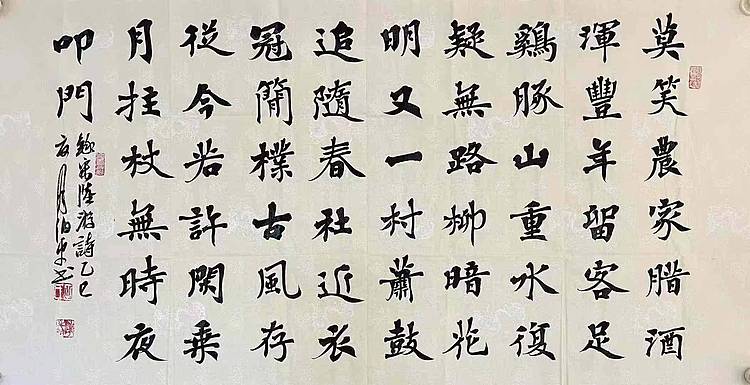 莫笑農家腊酒
渾豐年留客足
鷄豚山重水復
疑無路柳暗花
明又一村蕭鼓
追隨春社近衣
冠簡樸古風存
從今若許閑乘
月拄杖無時夜
叩門
錄宋陸游詩乙巳
月伯